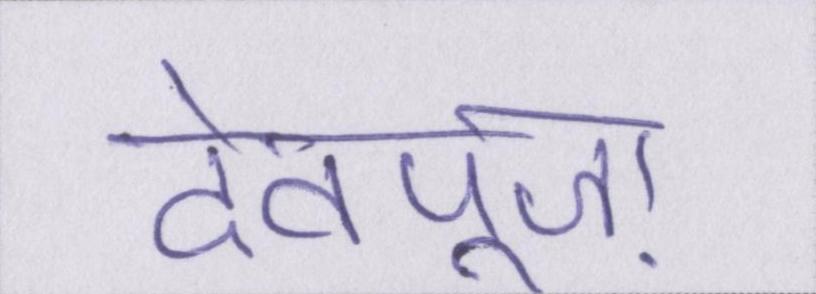 देवपूजा़